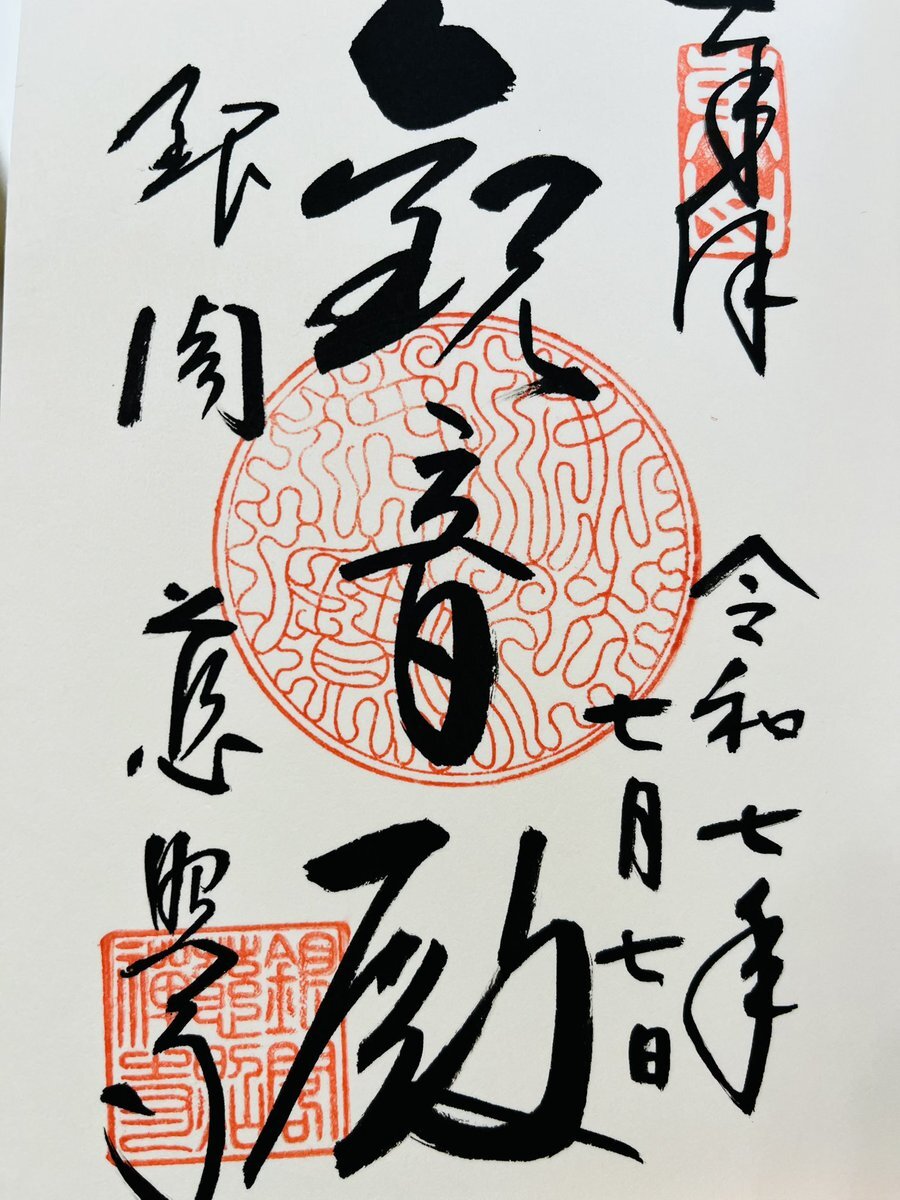 奉拝
令和七年
七月七日
観音殿
銀閣 慈照寺
銀閣
慈照
禅寺